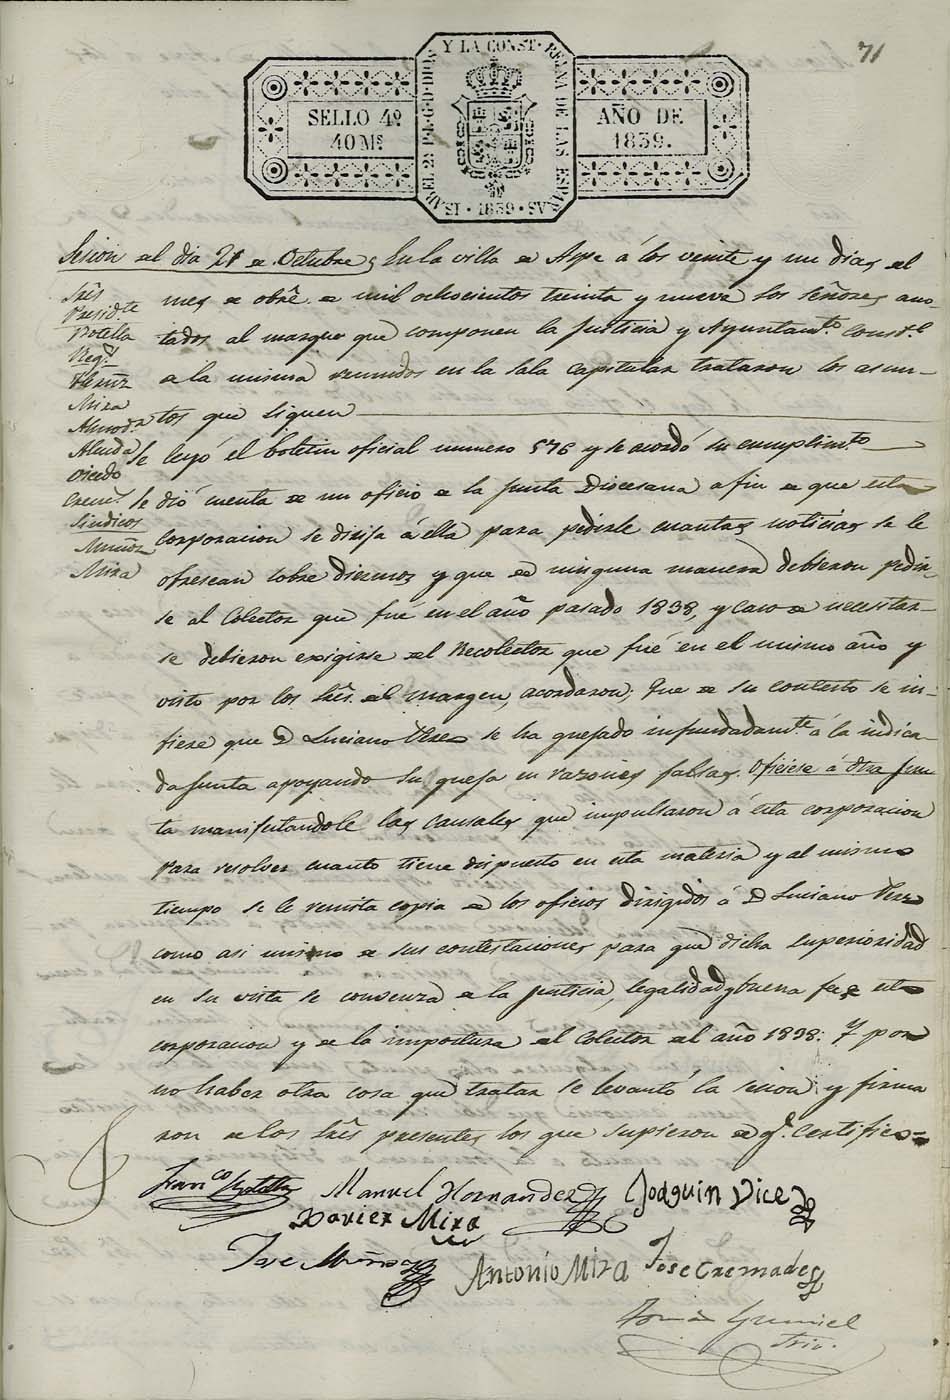 71
Y LA CONST. REINA DE LAS ESPAÑAS
ISABEL 2ª P.L.G.D.DIOS
· 1839 ·
SELLO 4º
40 Ms.
AÑO DE
1839.
Sesion del dia 21 de Octubre, En la villa de Aspe á los veinte y un dias del
mes de obrê. de mil ochocientos treinta y nueve los señores ano-
tados al margen que componen la Justicia y Ayuntamto. Constl.
de la misma reunidos en la sala capitular trataron los asun-
tos que siguen
Se leyó el boletin oficial numero 576 y se acordó su cumplimto.
Se dió cuenta de un oficio de la Junta Diocesana a fin de que esta
corporacion se dirija á ella para pedirle cuantas noticias se le
ofrescan sobre diezmos y que de ninguna manera debieron pedir-
se al Colector que fué en el año pasado 1838, y caso de necesitar-
se debieron exigirse del Recolector que fué en el mismo año y
visto por los Srês. del margen, acordaron; Que de su contesto se in-
fiere que D Luciano se ha quejado infundadamte. á la indica-
da Junta apoyando su queja en razones falsas. Oficiese á dha Jun
ta manifestandole las causales que impulsaron á esta corporacion
para resolver cuanto tiene dispuesto en esta materia y al mismo
tiempo se le remita copia de los oficios dirigidos á D Luciano
como asi mismo de sus contestaciones para que dicha superioridad
en su vista se convenza de la justicia, legalidad y buena fe de esta
corporacion y de la impostura del Colector del año 1838: Y por
no haber otra cosa que tratar se levantó la sesion y firma
ron de los Srês presentes los que supieron de qe. certifico=
Srês
Presidte
Botella
Regs.
Hernz
Mira
Almodr.
Alenda
Vicedo
Crems.
Sindicos
Muñoz
Mira
Franco Botella
Manuel Hernandez
Joaquin Vicedo
Xavier Mira
Jose Muñoz
António Mira
Jose Cremades
Gumiel
Srio.